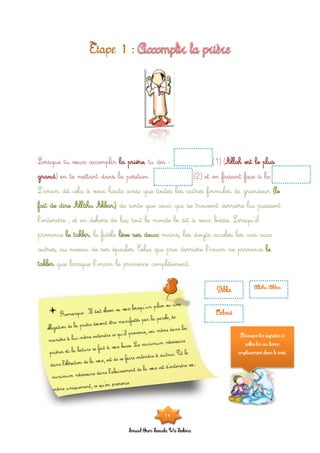 Etape 1 : Accomplir la prière
Lorsque tu veux accomplir la prière, tu dis : (1) (Allah est le plus
grand) en te mettant dans la position (2) et en faisant face à la
L'imam dit cela à voix haute ainsi que toutes les autres formules de grandeur (le
fait de dire Allâhu Akbar) de sorte que ceux qui se trouvent derrière lui puissent
l'entendre ; et en dehors de lui, tout le monde le dit à voix basse. Lorsqu'il
prononce le takbir, le fidèle lève ses deux mains, les doigts accolés les uns aux
autres, au niveau de ses épaules. Celui qui prie derrière l'imam ne prononce le
takbir que lorsque l'imam le prononce complètement.
Qibla
Allahu Akbar
Debout
+ Remarque : Il doit élever sa voix lorsqu'un pilier ou une
obligation de la prière doivent être manifestés par la parole, de
manière à lui-même entendre ce qu'il prononce, car même dans les
prières où la lecture se fait à voix basse. Le minimum nécessaire
dans l'élévation de la voix, est de se faire entendre à autrui. Et le
minimum nécessaire dans l'abaissement de la voix est d'entendre soi-
même uniquement, ce qu'on prononce
Découpes les vignettes et
colles-les au bonne
emplacement dans le texte.
14